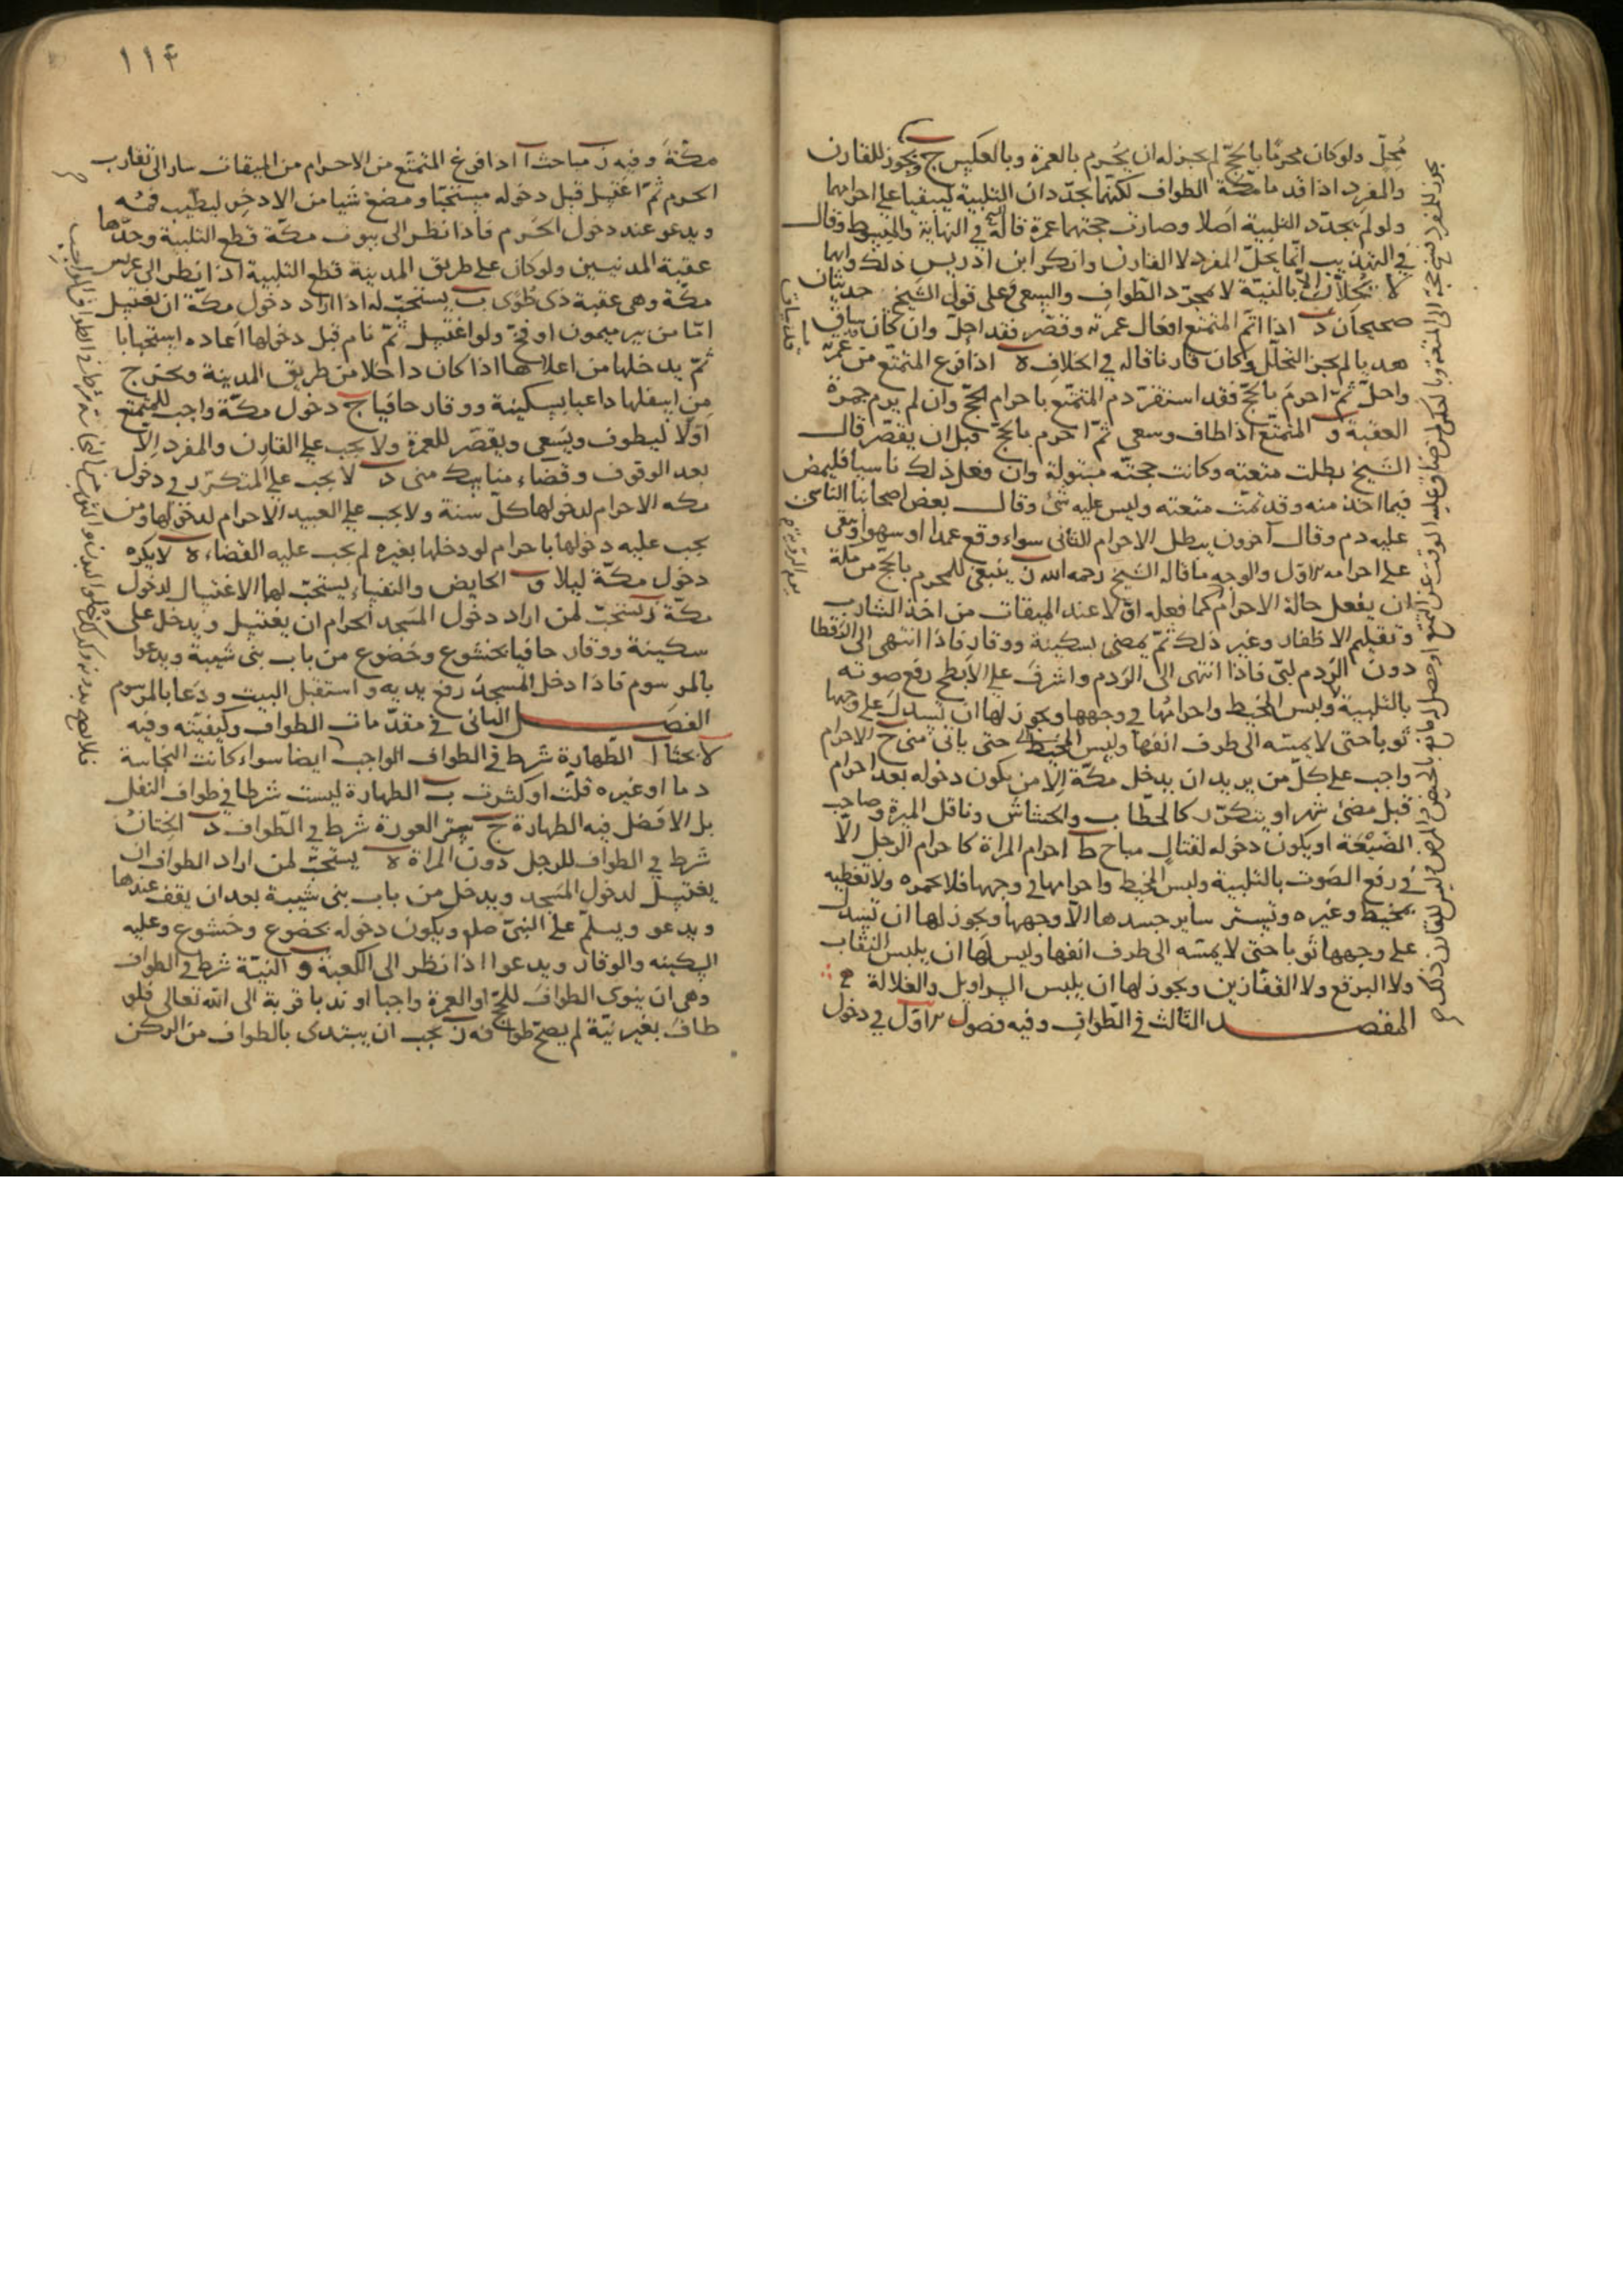 محلّ ولو كان محرمًا بالحجّ لم يجز له ان يحرم بالعمرة وبالعكس ج ويجوز للقارن
والمفرد اذا قدما مكّة الطواف لكنّهما يجدّدان التلبية ليبقيا على احرامهما
ولو لم يجدّد التلبية احلّا وصارت حجتهما عمرة قاله في النهاية والمبسوط وقال
في التهذيب انّما يحلّ المفرد لا القارن وانكر ابن ادريس ذلك وانهما
لا يحلّان الّا بالنيّة لا بمجرّد الطواف والسعى وعلى قول الشيخ حديثان
صحيحان د اذا اتم المتمتع افعال عمرته وقصّر فقد احلّ وان كان ساق
هديا لم يجز التحلّل وكان قارنا قاله في الخلاف ه اذا فرغ المتمتّع من عمرته
واحلّ ثمّ احرم بالحجّ فقد استقرّ دم المتمتّع باحرام الحجّ وان لم يرم جمرة
العقبة و المتمتّع اذا طاف وسعى ثمّ احرم بالحجّ قبل ان يقصّر قال
الشيخ بطلت متعته وكانت حجّته مبتولة وان فعل ذلك ناسيا فليمض
فيما اخذ منه وقد تمّت متعته وليس عليه شئ وقال بعض اصحابنا الناسى
عليه دم وقال آخرون يبطل الاحرام الثانى سواء وقع عمدا او سهوا ويبقى
على احرامه الاوّل والوجه ما قاله الشيخ رحمه الله ز ينبغى للمحرم بالحجّ من مكّة
ان يفعل حالة الاحرام كما فعله اوّلا عند الميقات من اخذ الشارب
وتقليم الاظفار وغير ذلك ثمّ يمضى بسكينة ووقار فاذا انتهى الى الرقطا
دون الردم لبّى فاذا انتهى الى الردم واشرف على الابطح رفع صوته
بالتلبية ولبس المخيط واحرامها في وجهها ويجوز لها ان تسدل على وجهها
ثوبا حتى لا يمسّه الى طرف انفها ولبس المخيط حتى ياتى منى ح الاحرام
واجب على كلّ من يريد ان يدخل مكّة الا من يكون دخوله بعد احرام
قبل مضىّ شهر او يتكرّر كالحطّاب والحشاش وناقل الميرة وصاحب
الضيعة او يكون دخوله لقتال مباح ط احرام المراة كاحرام الرجل الّا
في رفع الصوت بالتلبية ولبس المخيط واحرامها في وجهها فلا تخمره ولا تغطيه
بمخيط وغيره وتستر ساير جسدها الّا وجهها ويجوز لها ان تسدل
على وجهها ثوبا حتى لا يمسّه الى طرف انفها وليس لها ان يلبس النقاب
ولا البرقع ولا القفّازين ويجوز لها ان يلبس السراويل والغلالة
المقصد الثالث في الطواف وفيه فصول الاوّل في دخول
١١٤
مكّة وفيه ز مباحث ا اذا فرغ المتمتّع من الاحرام من الميقات سار الى تقارب
الحرم ثمّ اغتسل قبل دخوله مستحبّا ومضغ شيا من الاذخر ليطيب فمه
ويدعو عند دخول الحرم فاذا نظر الى بيوت مكّة قطع التلبية وحدّها
عقبة المدنيين ولو كان على طريق المدينة قطع التلبية اذا نظر الى عريش
مكّة وهى عقبة ذى طوى ب يستحبّ له اذا اراد دخول مكّة ان يغتسل
امّا من بير ميمون او فخّ ولو اغتسل ثمّ نام قبل دخولها اعاده استحبابا
ثمّ يدخلها من اعلاها اذا كان داخلا من طريق المدينة ويخرج
من اسفلها داعيا بسكينة ووقار حافيا ج دخول مكّة واجب للمتمتع
اوّلا ليطوف ويسعى ويقصّر للعمرة ولا يجب على القارن والمفرد الّا
بعد الوقوف وقضاء مناسك منى د لا يجب على المتكرّر في دخول
مكه الاحرام لدخولها كلّ سنة ولا يجب على العبيد الاحرام لدخولها ومن
يجب عليه دخولها باحرام لو دخلها بغيره لم يجب عليه القضاء ه لا يكره
دخول مكّة ليلا و الحايض والنفساء يستحبّ لها الاغتسال لدخول
مكّة ز يستحبّ لمن اراد دخول المسجد الحرام ان يغتسل ويدخل على
سكينة ووقار حافيا بخشوع وخضوع من باب بنى شيبة ويدعوا
بالمرسوم فاذا دخل المسجد رفع يديه واستقبل البيت ودعا بالمرسوم
الفصل الثانى في مقدّمات الطواف وكيفيّته وفيه
لا بحثا ا الطهارة شرط في الطواف الواجب ايضا سواء كانت النجاسة
دما او غيره قلّت او كثرت ب الطهارة ليست شرطا في طواف النفل
بل الافضل فيه الطهارة ج ستر العورة شرط في الطواف د الختان
شرط في الطواف للرجل دون المراة ه يستحبّ لمن اراد الطواف ان
يغتسل لدخول المسجد ويدخل من باب بنى شيبة بعد ان يقف عندها
ويدعو ويسلّم على النبىّ صلم ويكون دخوله بخضوع وخشوع وعليه
السكينه والوقار ويدعوا اذا نظر الى الكعبة و النيّة شرط في الطواف
وهى ان ينوى الطواف للحجّ او العمرة واجبا او ندبا قربة الى الله تعالى فلو
طاف بغير نيّة لم يصحّ طوافه ز يجب ان يبتدى بالطواف من الركن